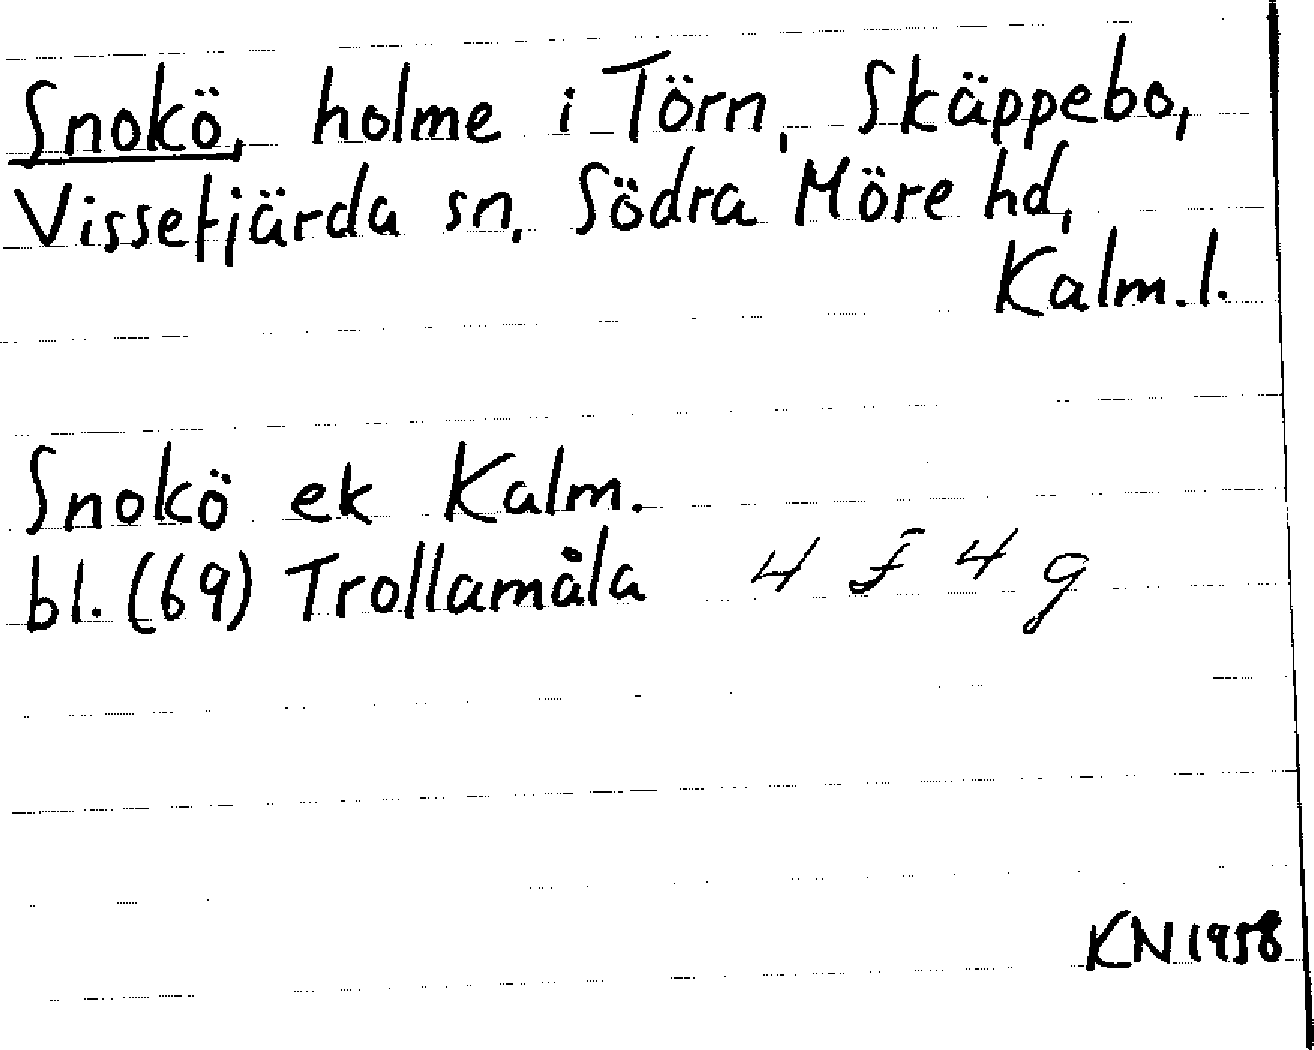 Snokö, holme i Törn, Skäppebo,
Vissefjärda sn, Södra Möre hd,
Kalm.l.
Snokö ek Kalm.
bl. (69) Trollamåla 4 F 4 g
KN 1958